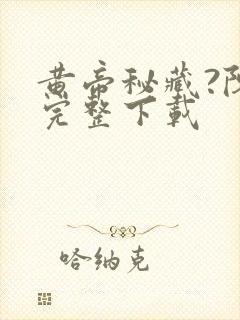 黄帝秘藏?阳
完整下載
哈纳克